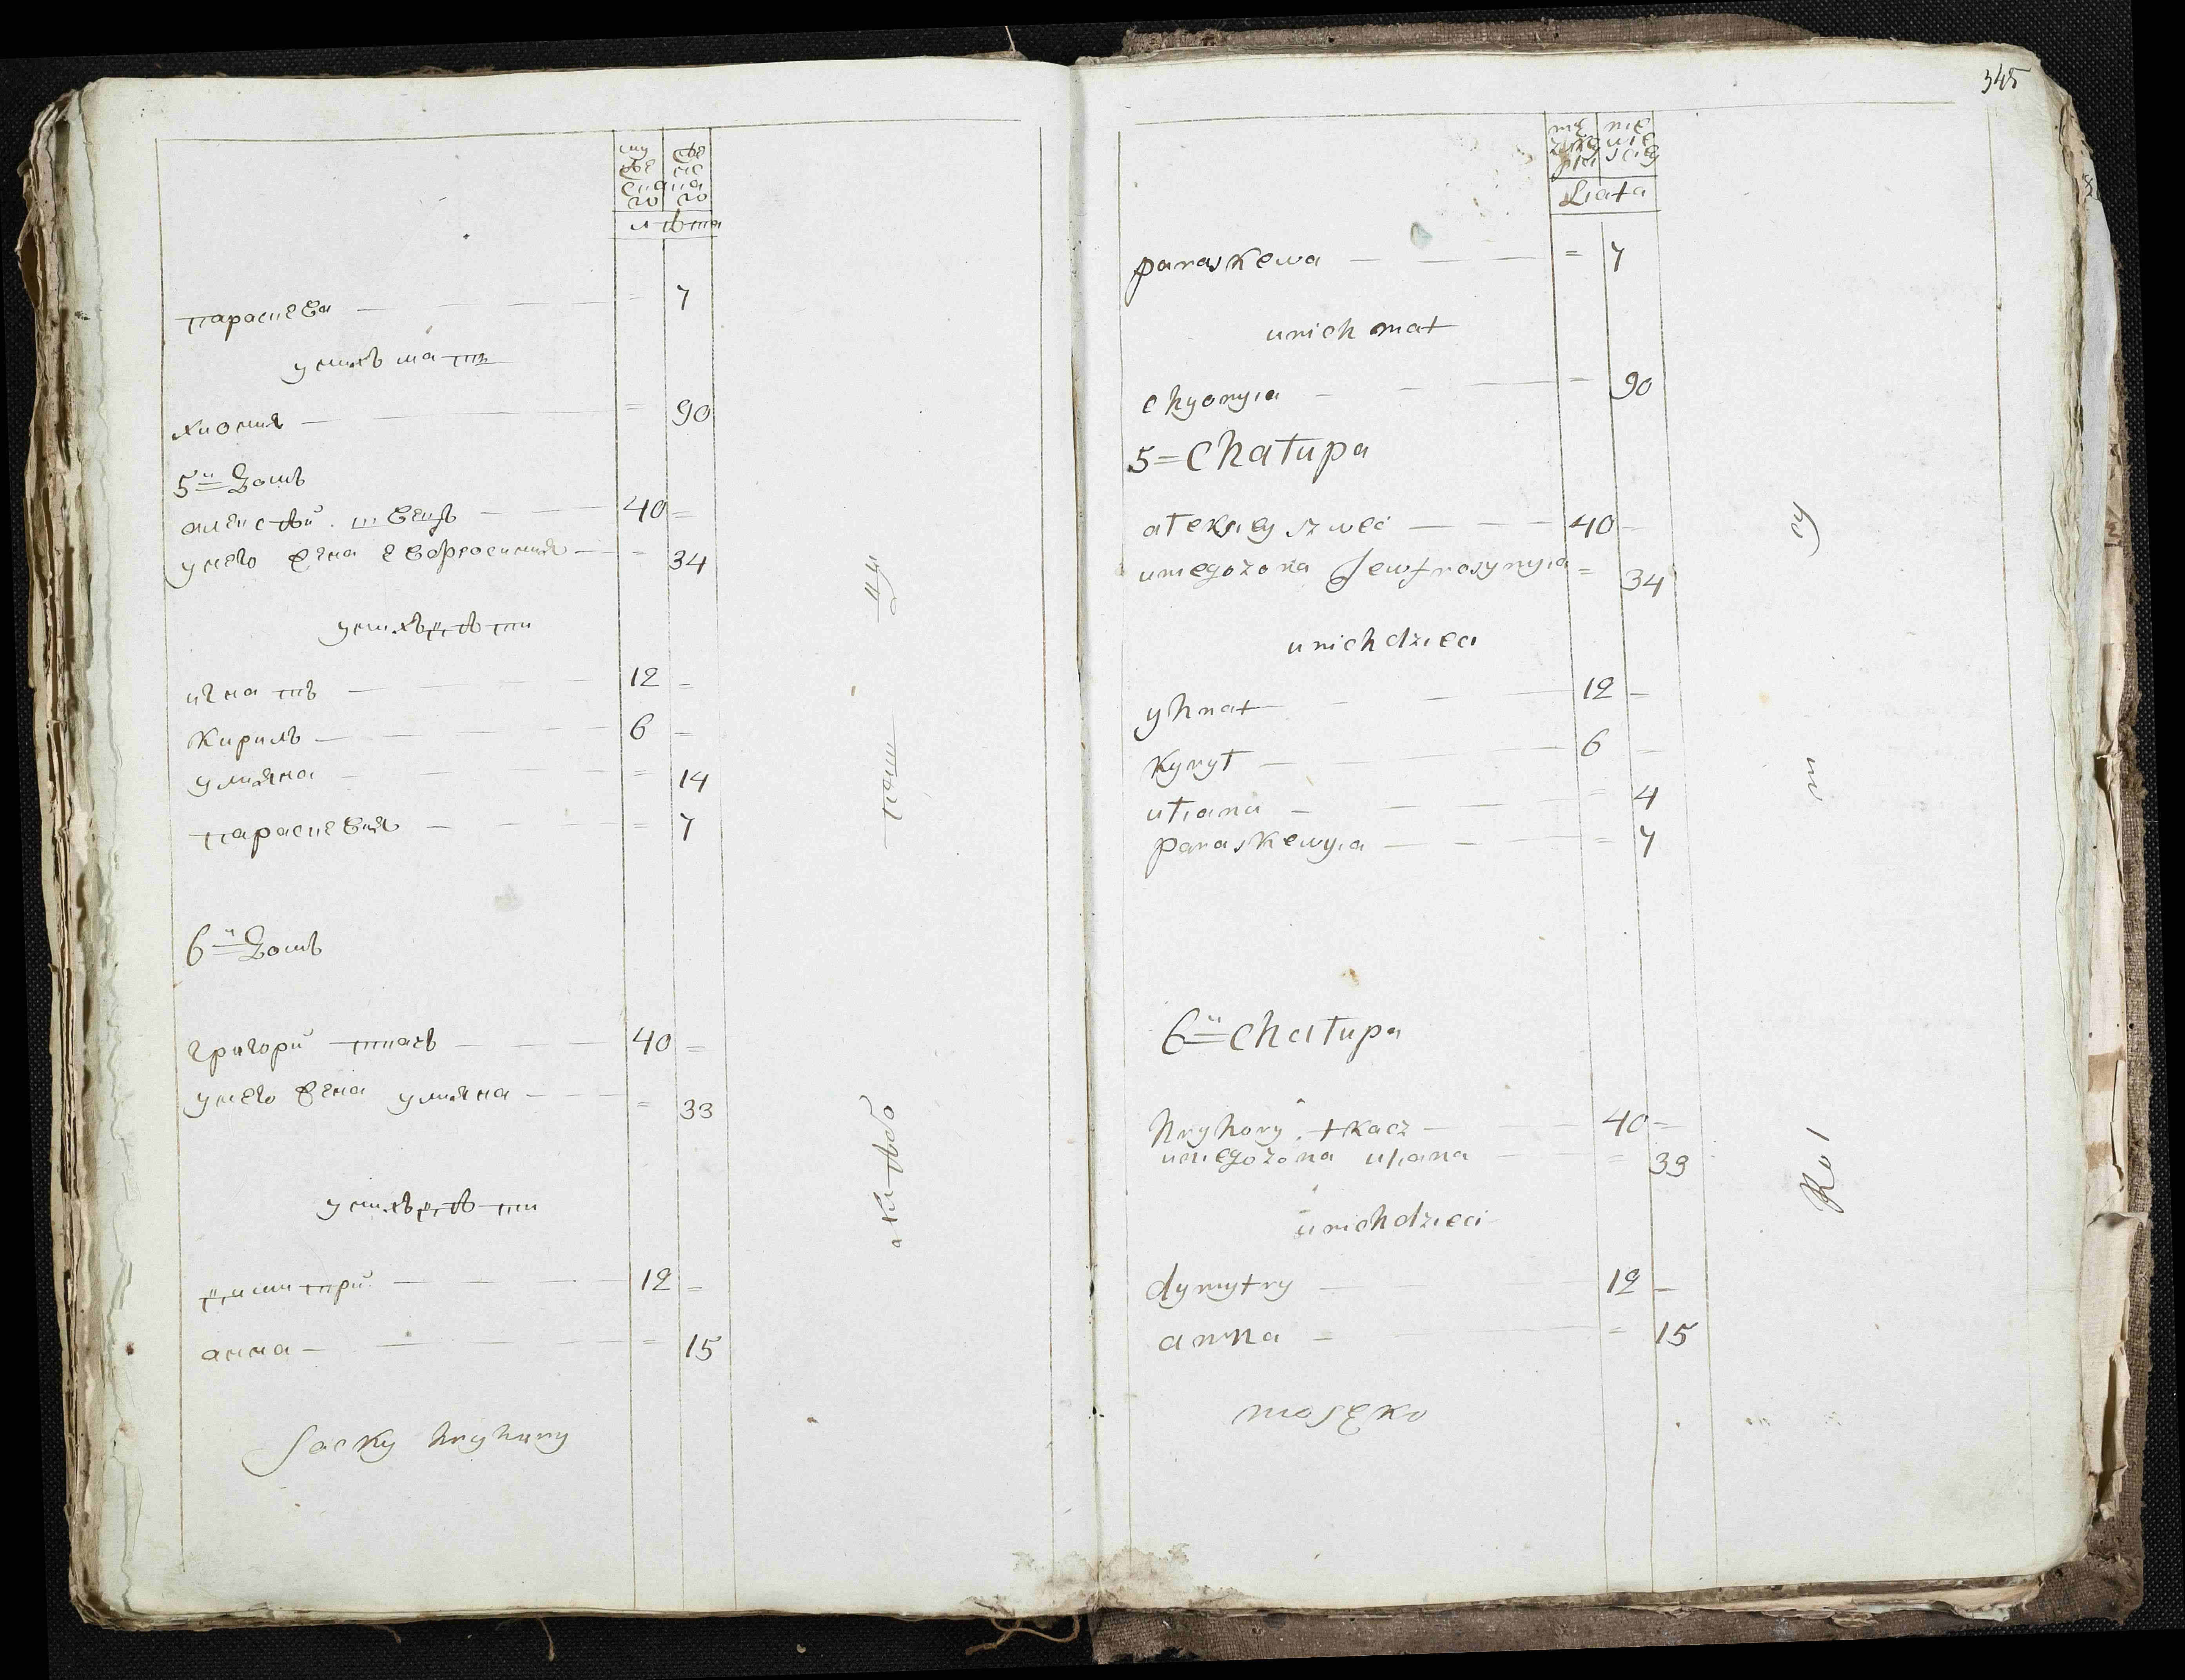 му же
жескаго женскаго
лѣта
параскева — — — = 7
у нихъ мать
хиония — — — = 90
5й домъ
алексѣй швецъ — — 40 =
у него жена евфросиния — = 34
у нихъ дѣти
игнатъ — — — 12 =
кирилъ — — — 6 =
улияна — — — = 14
параскевия — — = 7
6й домъ
григорий ткачъ — — — 40 =
у него жена улияна — — = 33
у нихъ дѣти
димитрий — — — 12 =
анна — — — = 15
Jacky hryhory
345
Liata
paraskewa — — — = 7
unich mat
chyonyia — — — = 90
5 = Chałupa
ałeksiey szwec — — — 40 —
uniegozona Jewfrosynyia = 34
unich dzieci
yhnat — — — 12 —
kyrył — — — 6 —
uliana — — — = 4
paraskewyia — — — = 7
6й = chałupa
hryhory tkacz — — 40 —
uniegozona uliana — — = 33
unich dzieci
dymytry — — — 12 —
anna — — — = 15
moszko